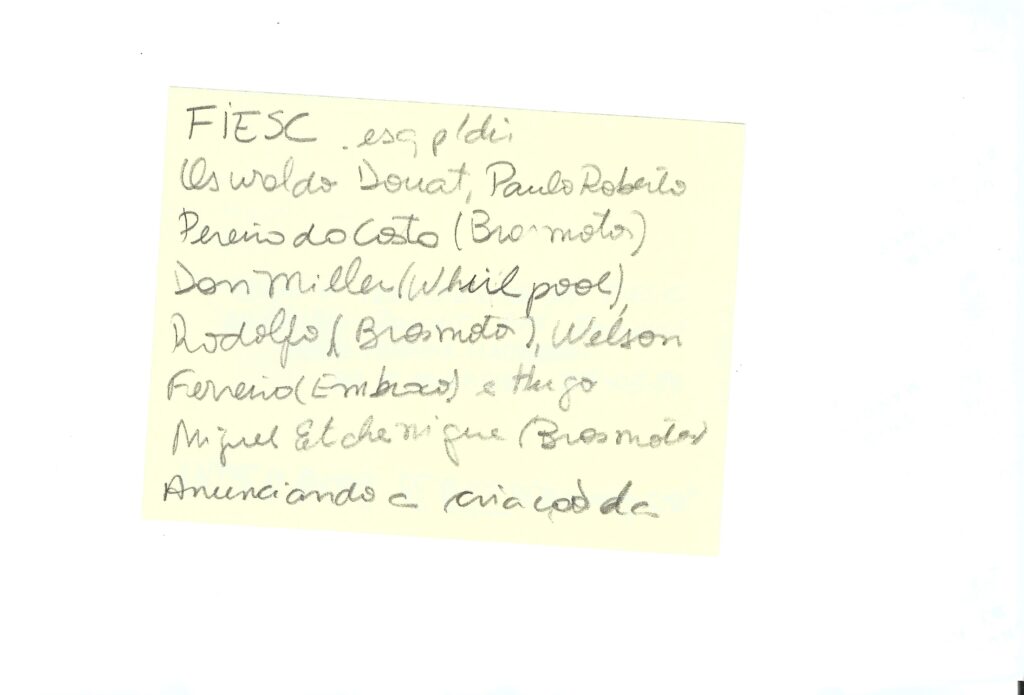 FIESC . esq p/dir
Oswaldo Douat, Paulo Roberto
Pereira da Costa (Brasmotor)
Don Miller (Whirlpool),
Rodolfo (Brasmotor), Wélson
Ferreira (Embraco) e Hugo
Miguel Etchenique (Brasmotor)
Anunciando a criação da